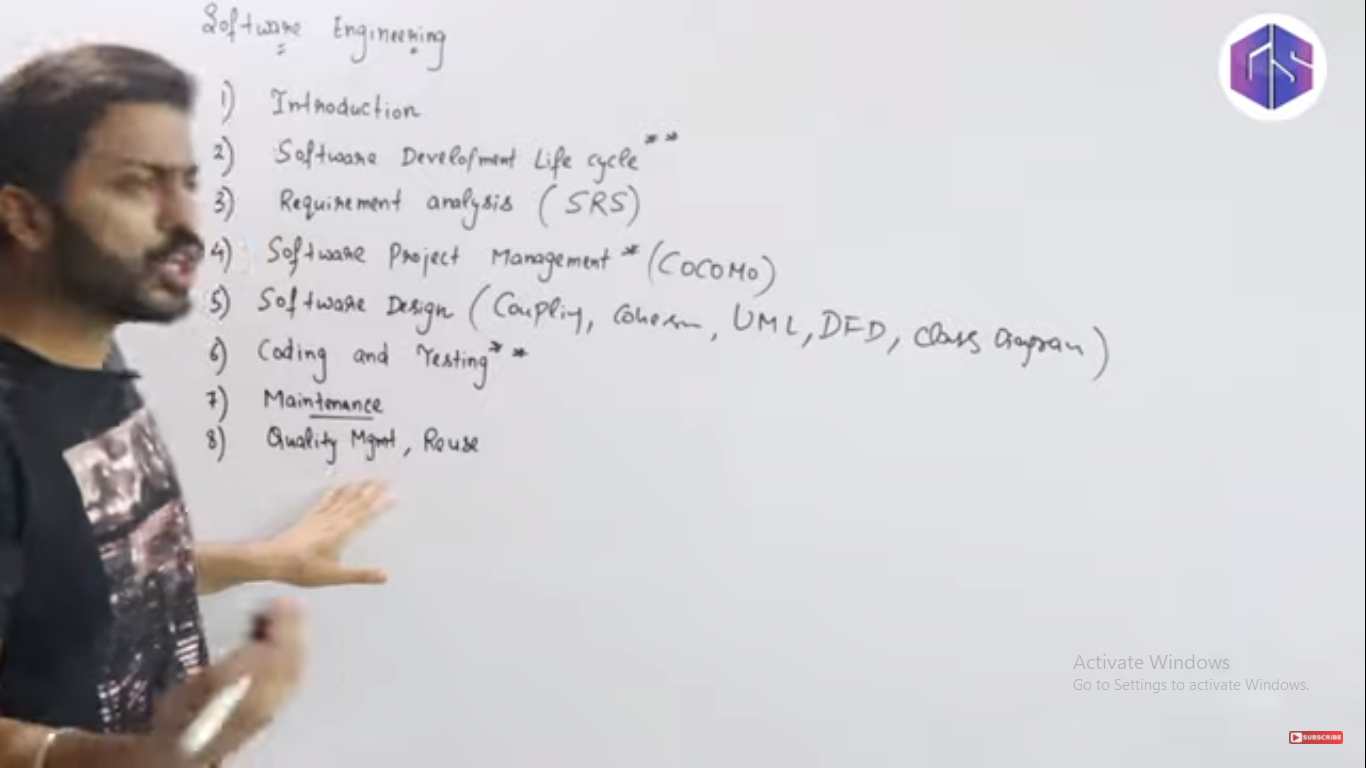 Software Engineering
1) Introduction
2) Software Development Life cycle **
3) Requirement analysis (SRS)
4) Software Project Management * (COCOMO)
5) Software Design (Coupling, Cohesion, UML, DFD, Class Diagram)
6) Coding and Testing **
7) Maintenance
8) Quality Mgmt, Reuse
GS
Activate Windows
Go to Settings to activate Windows.
SUBSCRIBE